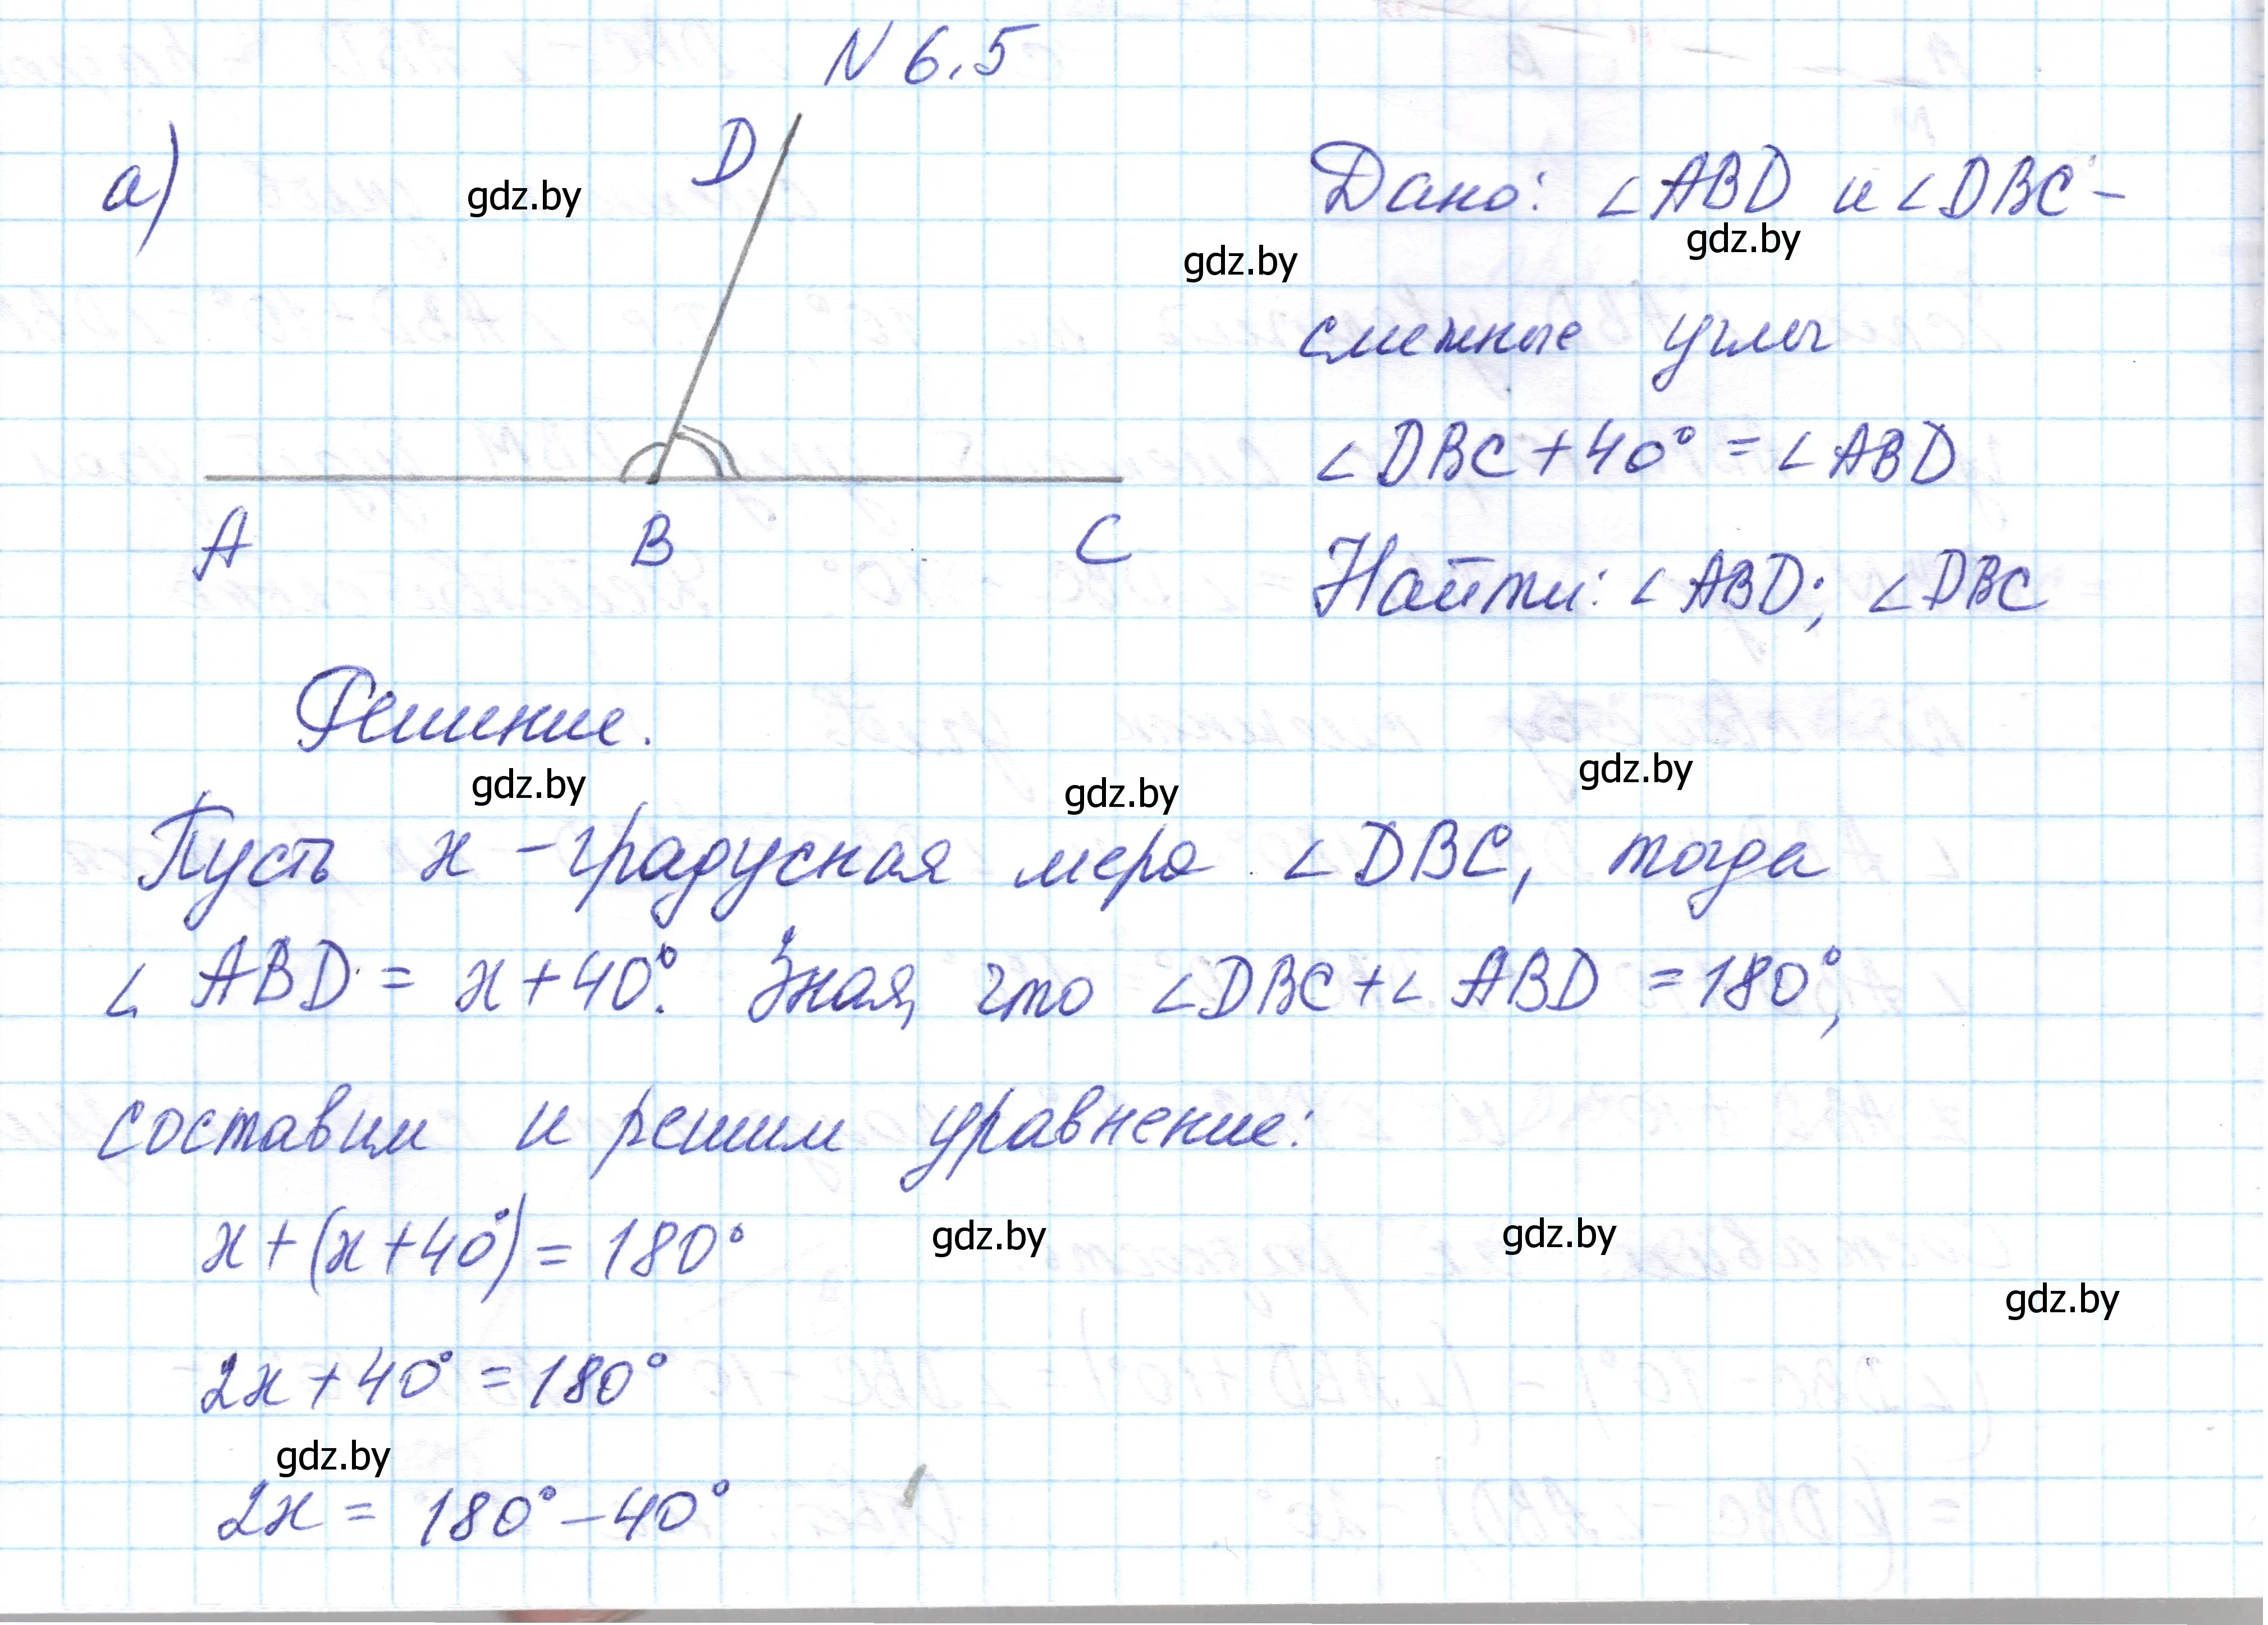 N 6.5
а)
D
gdz.by
gdz.by
Дано: ∠ABD и ∠DBC –
gdz.by
смежные углы
∠DBC + 40° = ∠ABD
A B C
Найти: ∠ABD; ∠DBC
Решение.
gdz.by
gdz.by
gdz.by
Пусть x – градусная мера ∠DBC, тогда
∠ ABD = x + 40°. Зная, что ∠DBC + ∠ ABD = 180°,
составим и решим уравнение:
x + (x + 40°) = 180°
gdz.by
gdz.by
gdz.by
2x + 40° = 180°
gdz.by
2x = 180° – 40°